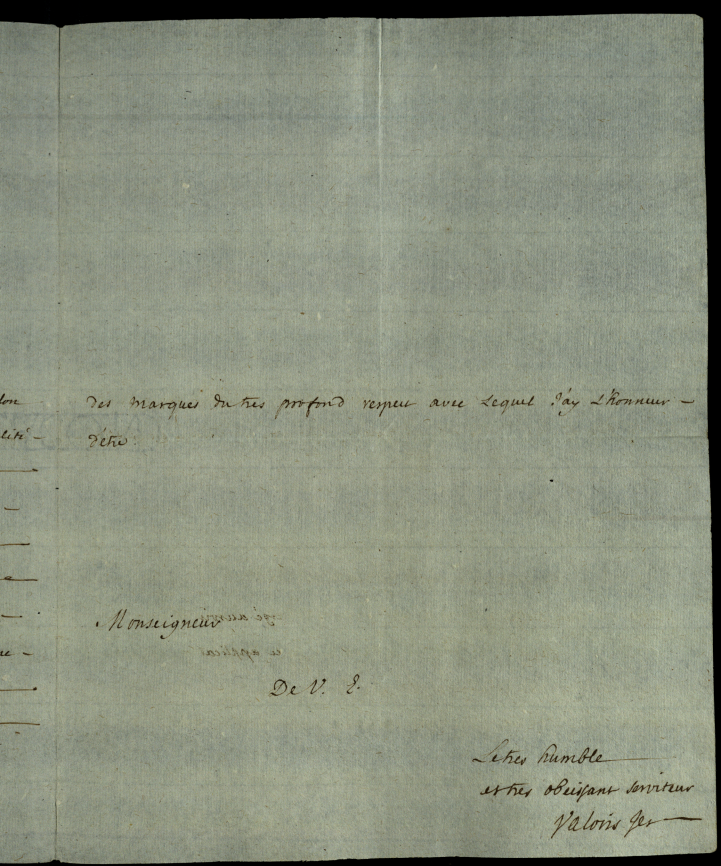 des marques du tres profond respect avec Lequel J'ay L'honneur –
d'etre
Monseigneur
De V. E.
Le tres humble
et tres obeissant serviteur
Valoris